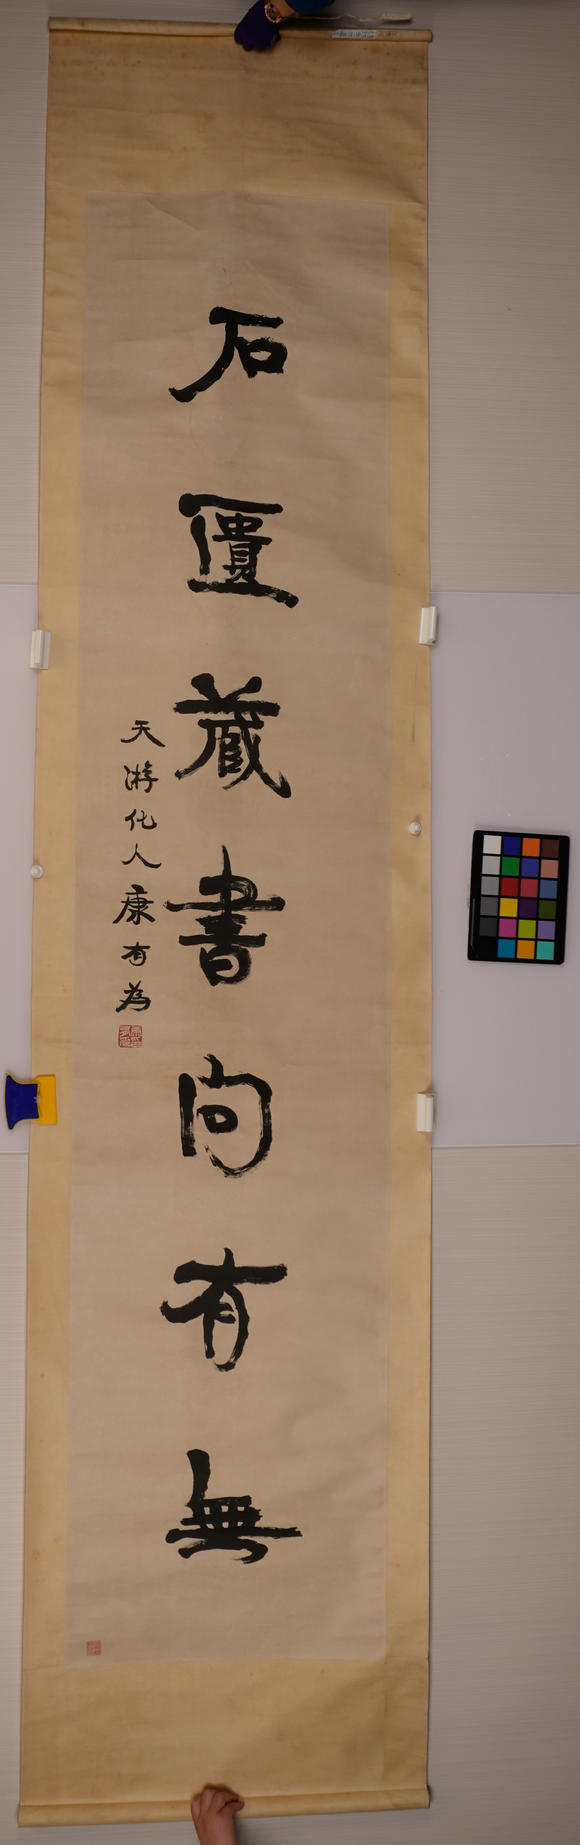 石匱藏書向有無
天游化人康有為